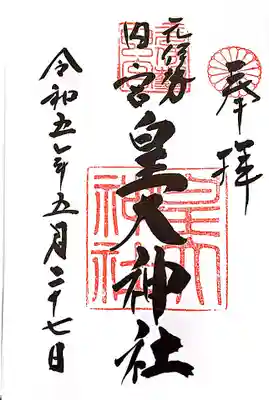 奉拝
元伊勢
内宮皇大神社
皇大神社
令和五年五月二十七日